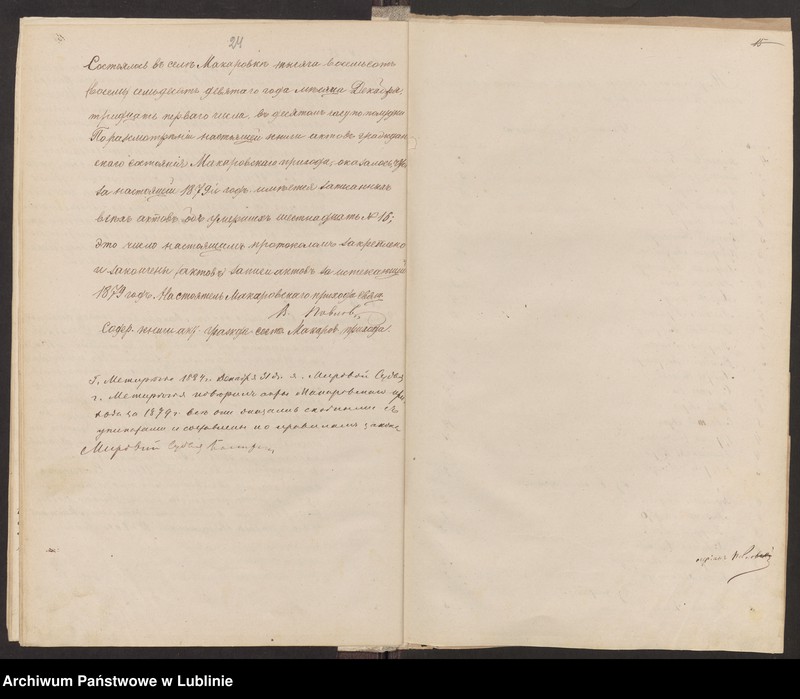 24
Состоялось въ селѣ Макаровкѣ тысяча восемьсотъ
семьдесятъ девятаго года мѣсяца Декабря
тридцать перваго числа, въ десятомъ часу по полудни
По разсмотрѣніи настоящей книги актовъ граждан
скаго состоянія Макаровскаго прихода, оказалось, что
за настоящій 1879й годъ имѣется записанныхъ
всѣхъ актовъ умершихъ шестнадцать № 16;
это число настоящимъ протоколомъ закрѣплено
и закончены записи актовъ за истекающій
1879 годъ. Настоятель Макаровскаго прихода
В. Павловъ
Содер. книги акт. гражд. сост. Макаров. прихода.
Декабря 31 дня. Мировой Судья
г. повѣрилъ акты Макаровскаго при
хода за 1879 г. все они оказались сходными съ
уникатами и составлены по правиламъ закона
Мировой Судья
15